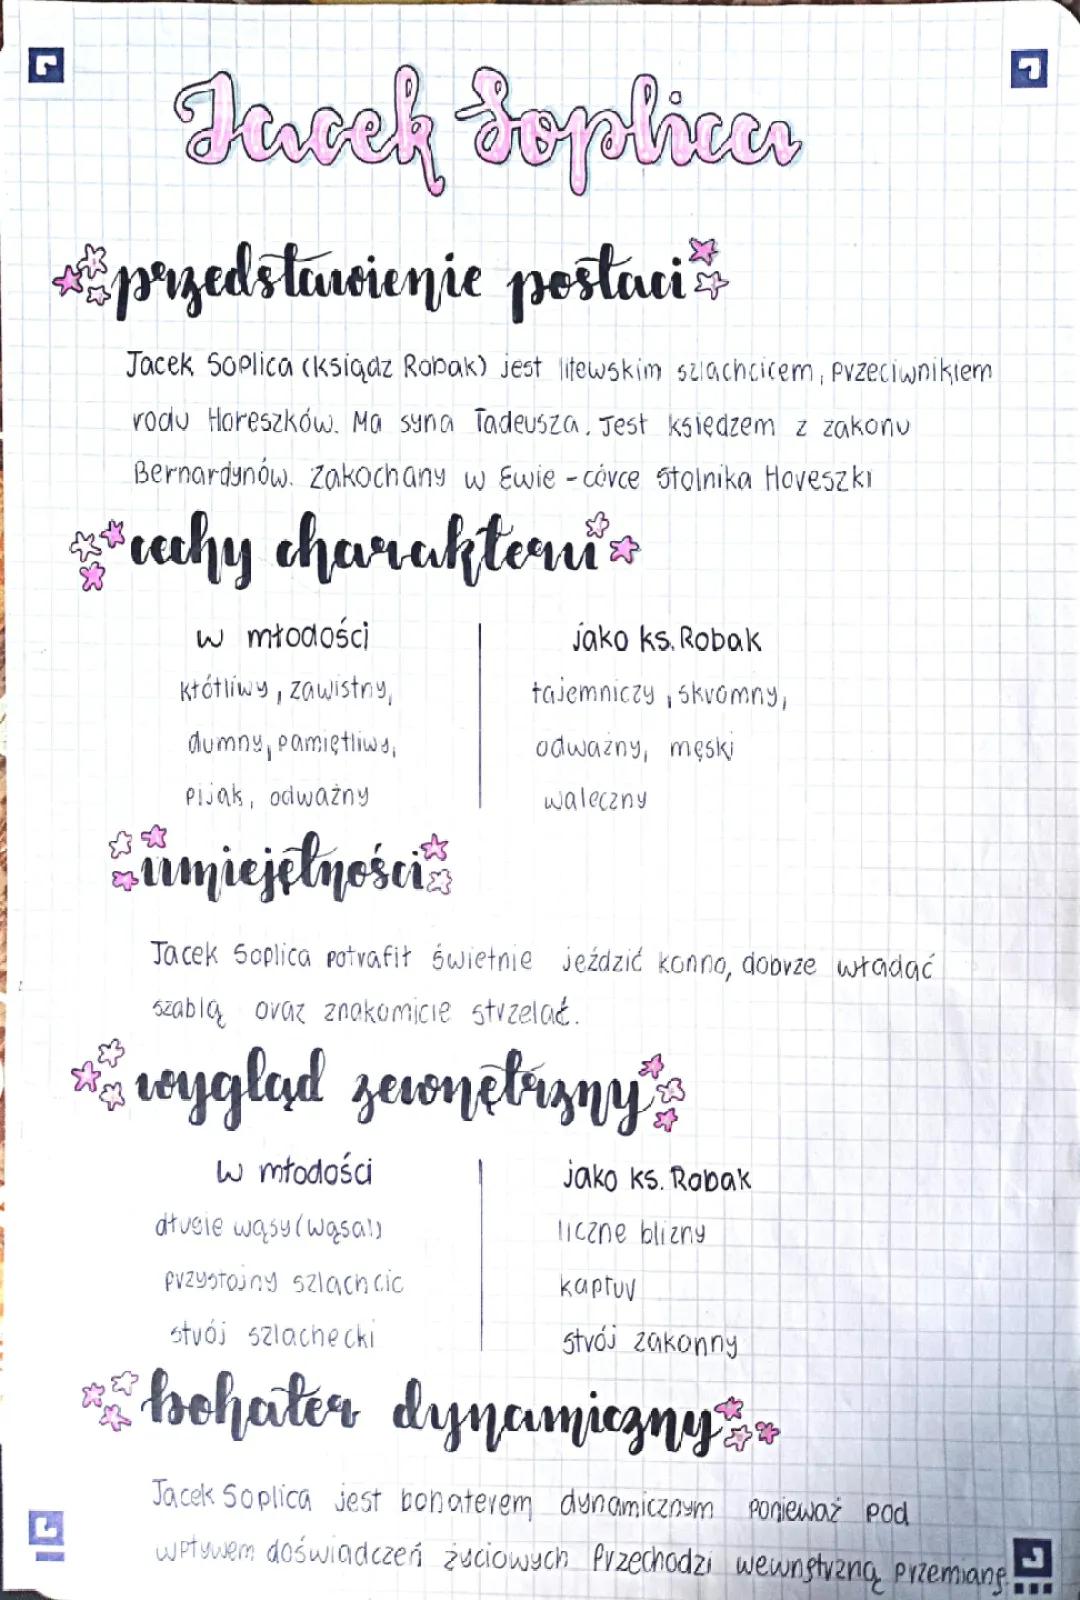 Jacek Soplica
przedstawienie postaci
Jacek Soplica (ksiądz Robak) jest litewskim szlachcicem, przeciwnikiem
rodu Horeszków. Ma syna Tadeusza. Jest księdzem z zakonu
Bernardynów. Zakochany w Ewie - córce Stolnika Horeszki
cechy charakteru
w młodości
kłótliwy, zawistny,
dumny, pamiętliwy,
pijak, odważny
jako ks. Robak
tajemniczy, skromny,
odważny, męski
waleczny
umiejętności
Jacek Soplica potrafił świetnie jeździć konno, dobrze władać
szablą oraz znakomicie strzelać.
wygląd zewnętrzny
w młodości
długie wąsy (wąsal)
przystojny szlachcic
strój szlachecki
jako ks. Robak
liczne blizny
kaptur
strój zakonny
bohater dynamiczny
Jacek Soplica jest bohaterem dynamicznym ponieważ pod
wpływem doświadczeń życiowych przechodzi wewnętrzną przemianę.